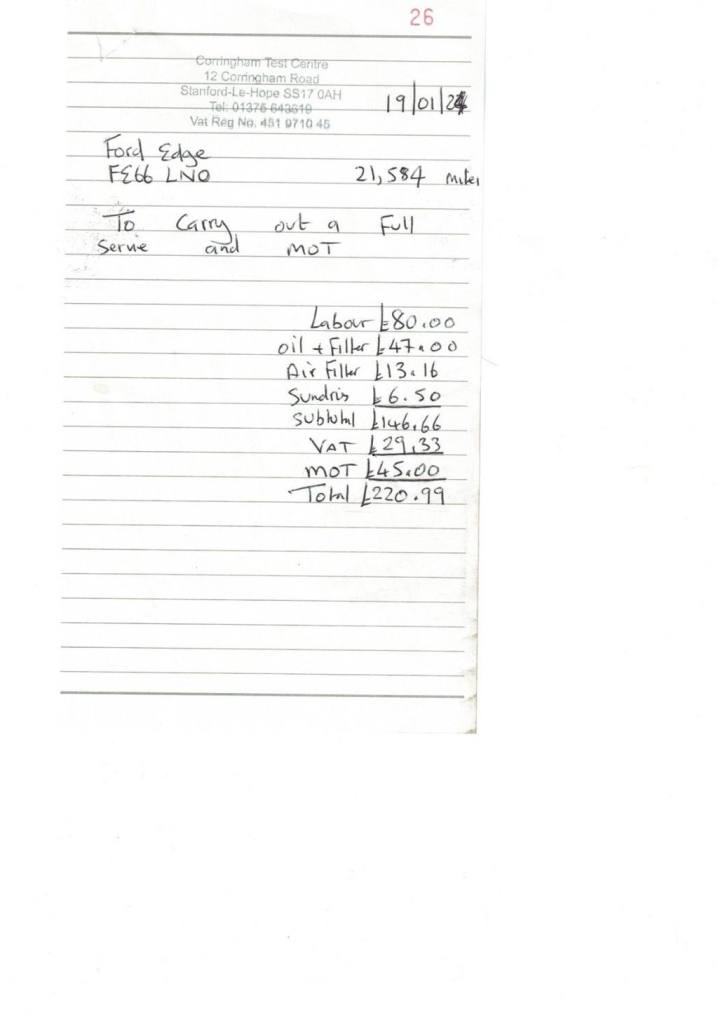 26
Corringham Test Centre
12 Corringham Road
Stanford-Le-Hope SS17 0AH
Tel: 01375 643619
Vat Reg No. 451 9710 45
19/01/24
Ford Edge
FE66 LNO
21,584 miles
To Carry out a Full
Servie and MOT
Labour £80.00
oil + Filter £47.00
Air Filter £13.16
Sundris £6.50
Subtotal £146.66
VAT £29.33
MOT £45.00
Total £220.99